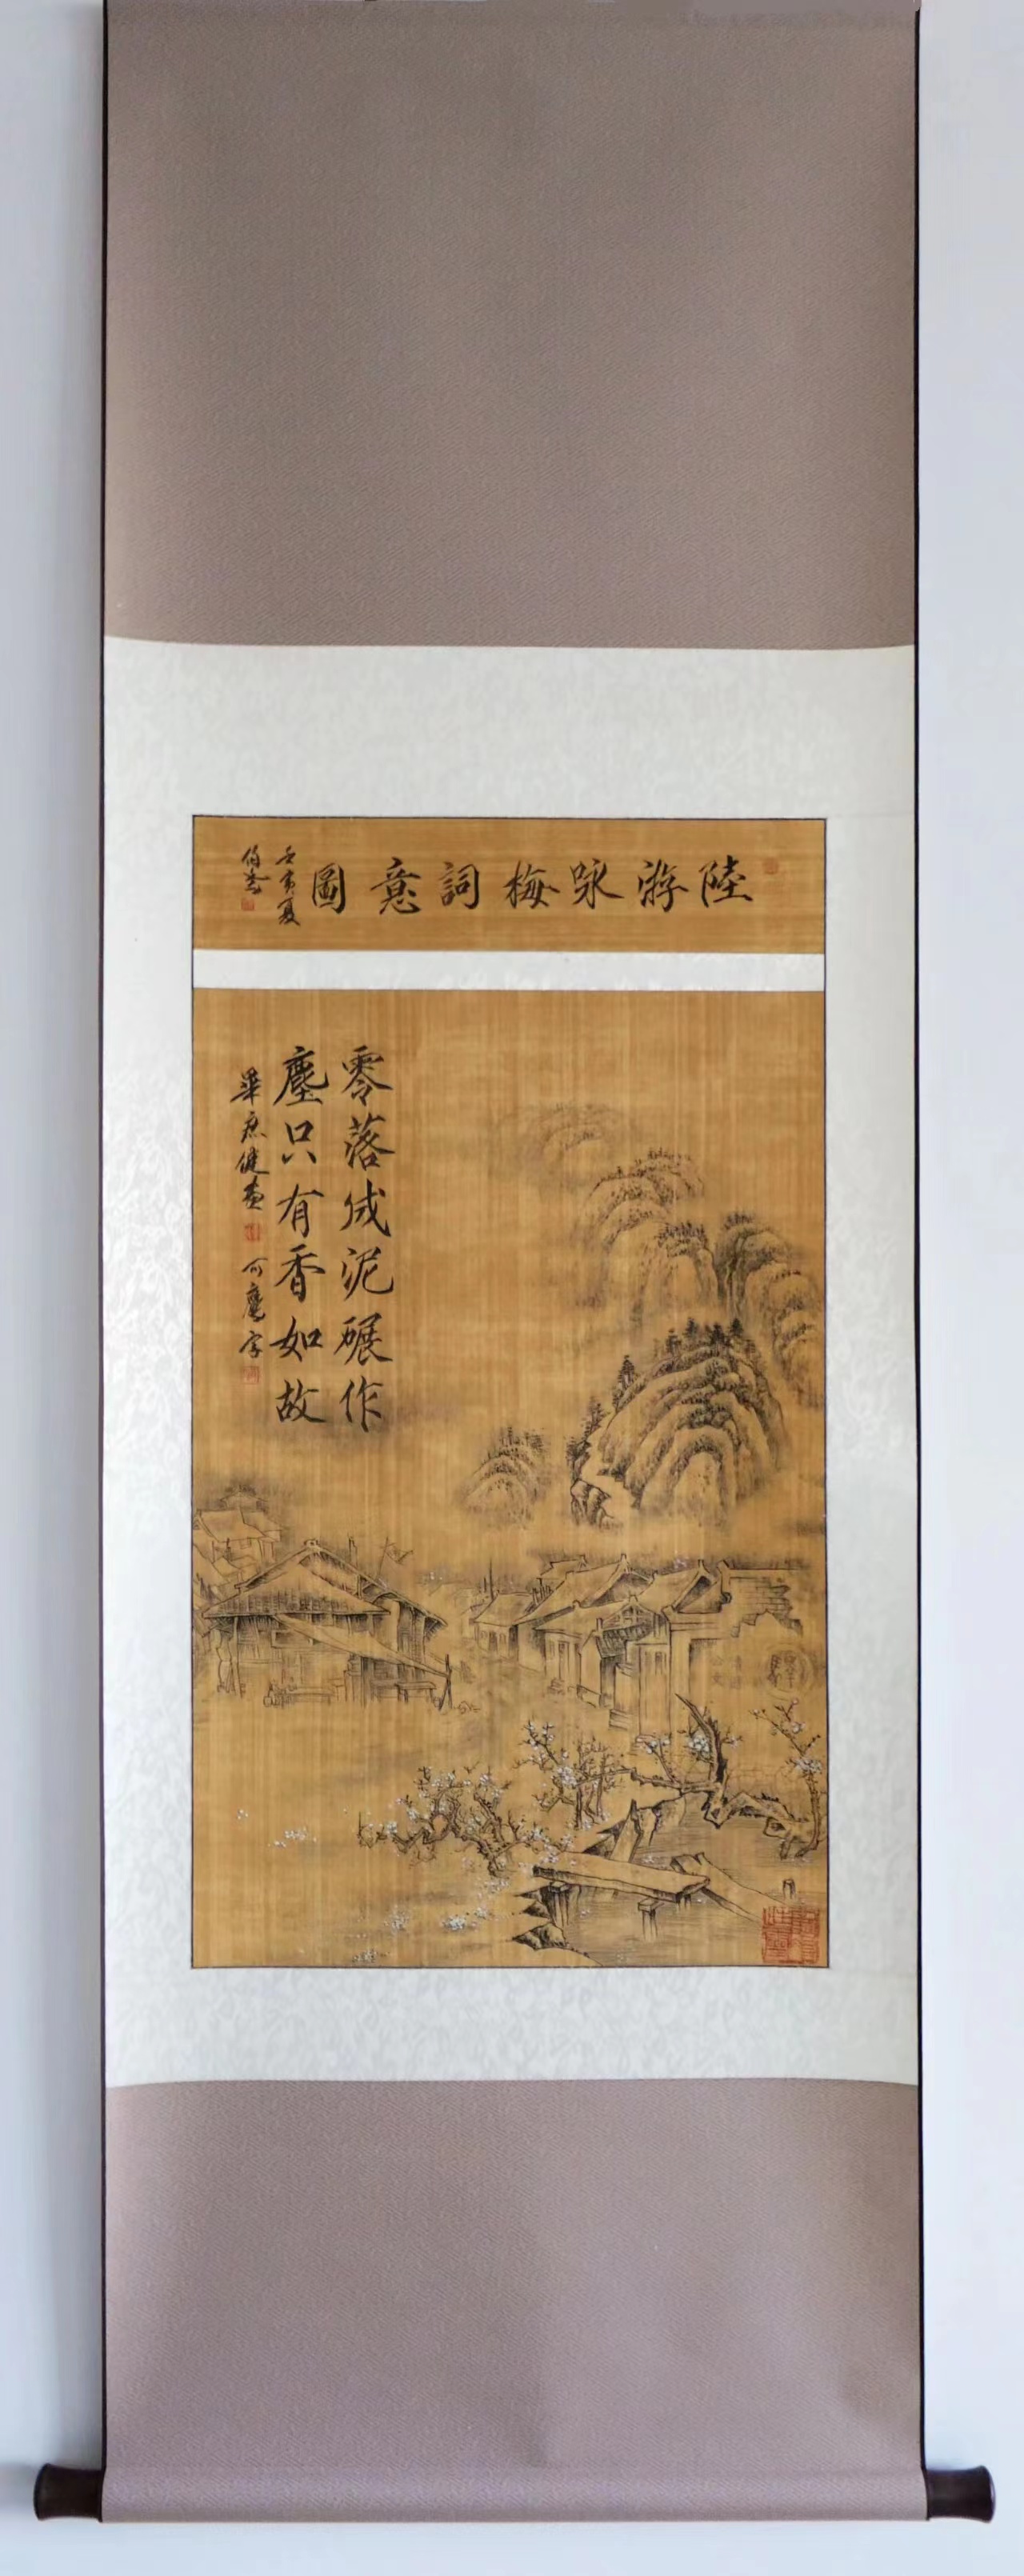 陸游詠梅詞意圖
壬寅夏
零落成泥碾作
塵只有香如故
畢庶健畫
可鷹字
驛